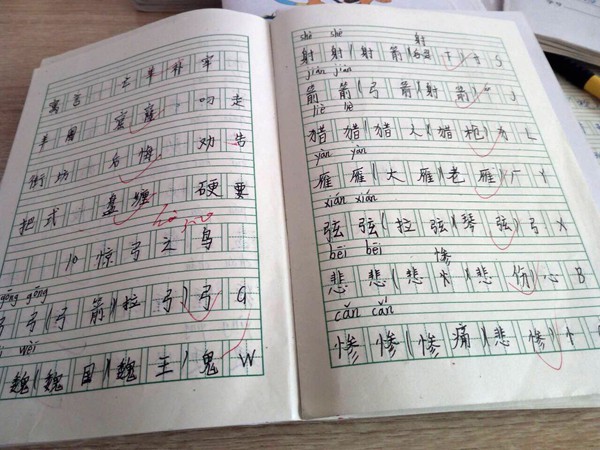 寓言 亡羊补牢
羊圈 窟窿 叼走
街坊 后悔 劝告
把式 盘缠 硬要
10 惊弓之鸟
gōng gōng
弓弓(弓箭)(拉弓)弓 G
wèi
魏(魏国)(魏王)鬼 W
shè shè 射
射射(射箭)
jiàn jiàn
箭箭(弓箭)(射箭) J
liè liè
猎猎(猎人)(猎枪) L
yàn yàn
雁雁(大雁)(老雁)厂 Y
xián xián
弦弦(拉弦)(琴弦)弓 X
bēi bēi 惨
悲悲(悲)(悲伤)心 B
cǎn cǎn
惨惨(惨痛)(悲惨)忄